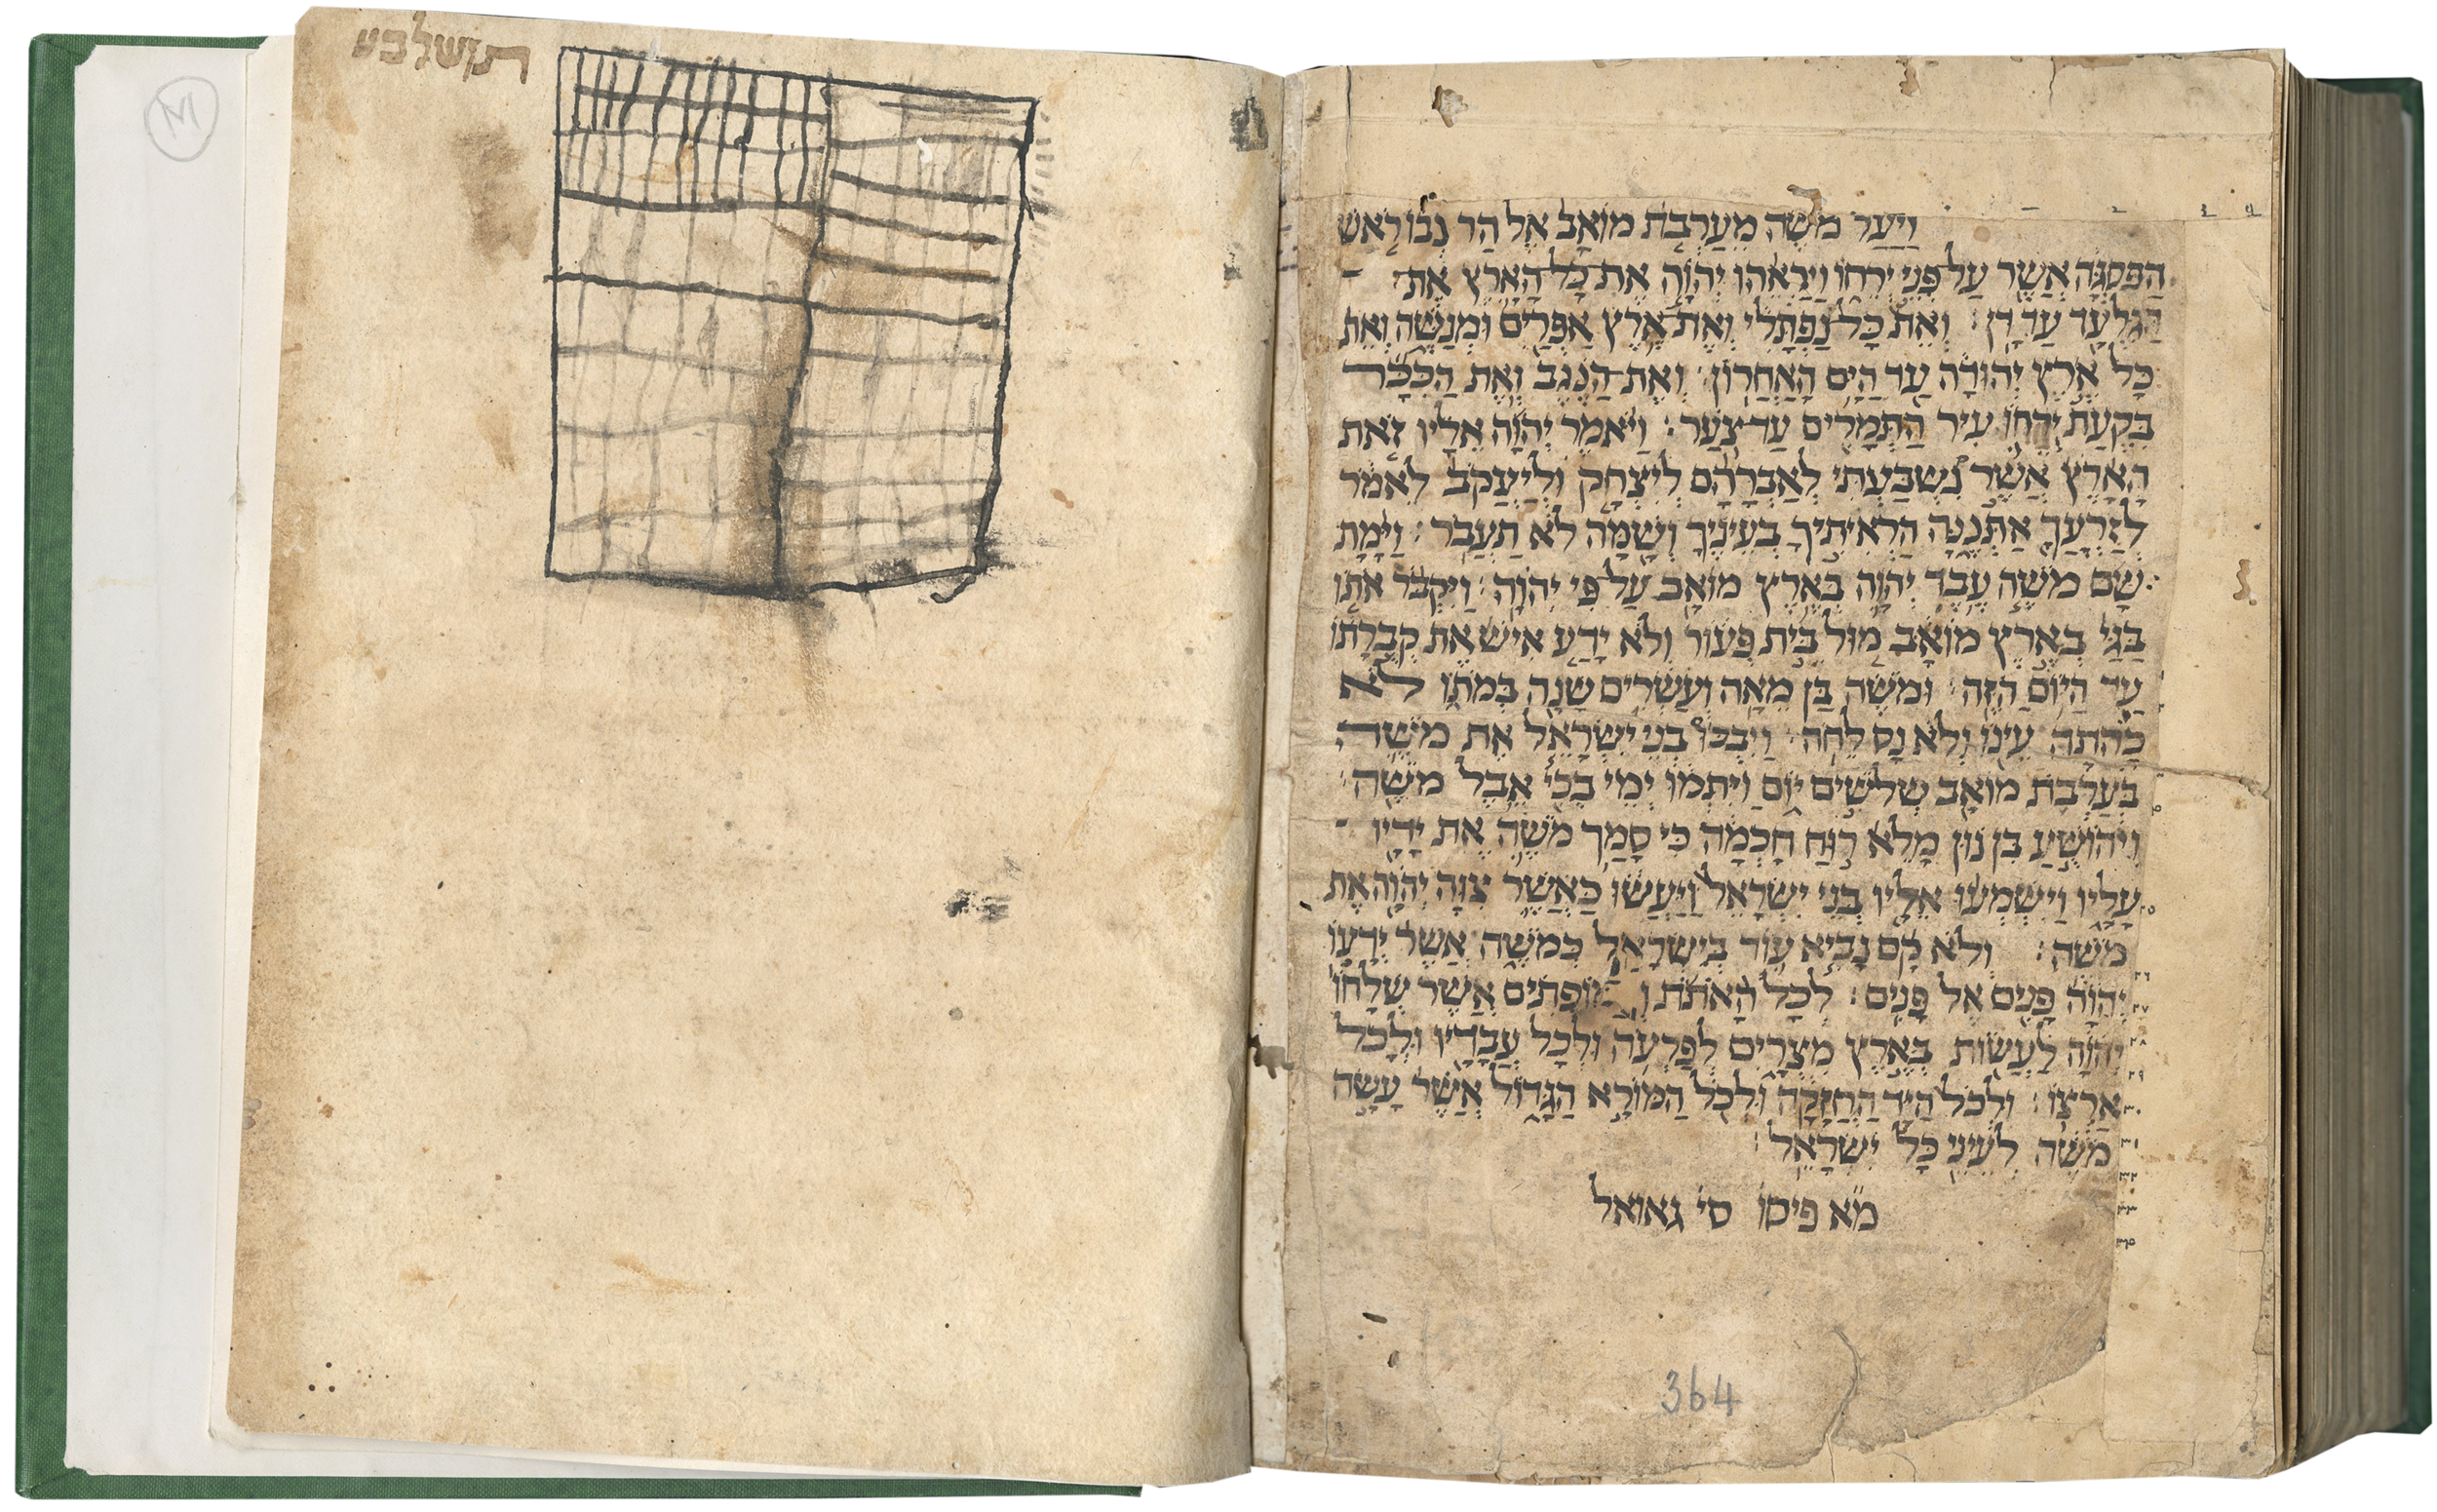 וַיַּעַל מֹשֶׁה מֵעַרְבֹת מוֹאָב אֶל הַר נְבוֹ רֹאשׁ
הַפִּסְגָּה אֲשֶׁר עַל פְּנֵי יְרֵחוֹ וַיַּרְאֵהוּ יְהוָה אֶת כָּל הָאָרֶץ אֶת
הַגִּלְעָד עַד דָּן׃ וְאֵת כָּל נַפְתָּלִי וְאֶת אֶרֶץ אֶפְרַיִם וּמְנַשֶּׁה וְאֵת
כָּל אֶרֶץ יְהוּדָה עַד הַיָּם הָאַחֲרוֹן׃ וְאֶת הַנֶּגֶב וְאֶת הַכִּכָּר
בִּקְעַת יְרֵחוֹ עִיר הַתְּמָרִים עַד צֹעַר׃ וַיֹּאמֶר יְהוָה אֵלָיו זֹאת
הָאָרֶץ אֲשֶׁר נִשְׁבַּעְתִּי לְאַבְרָהָם לְיִצְחָק וּלְיַעֲקֹב לֵאמֹר
לְזַרְעֲךָ אֶתְּנֶנָּה הֶרְאִיתִיךָ בְעֵינֶיךָ וְשָׁמָּה לֹא תַעֲבֹר׃ וַיָּמָת
שָׁם מֹשֶׁה עֶבֶד יְהוָה בְּאֶרֶץ מוֹאָב עַל פִּי יְהוָה׃ וַיִּקְבֹּר אֹתוֹ
בַגַּיְ בְּאֶרֶץ מוֹאָב מוּל בֵּית פְּעוֹר וְלֹא יָדַע אִישׁ אֶת קְבֻרָתוֹ
עַד הַיּוֹם הַזֶּה׃ וּמֹשֶׁה בֶּן מֵאָה וְעֶשְׂרִים שָׁנָה בְּמֹתוֹ לֹא
כָהֲתָה עֵינוֹ וְלֹא נָס לֵחֹה׃ וַיִּבְכּוּ בְנֵי יִשְׂרָאֵל אֶת מֹשֶׁה
בְּעַרְבֹת מוֹאָב שְׁלֹשִׁים יוֹם וַיִּתְּמוּ יְמֵי בְכִי אֵבֶל מֹשֶׁה׃
וִיהוֹשֻׁעַ בִּן נוּן מָלֵא רוּחַ חָכְמָה כִּי סָמַךְ מֹשֶׁה אֶת יָדָיו
עָלָיו וַיִּשְׁמְעוּ אֵלָיו בְּנֵי יִשְׂרָאֵל וַיַּעֲשׂוּ כַּאֲשֶׁר צִוָּה יְהוָה אֶת
מֹשֶׁה׃ וְלֹא קָם נָבִיא עוֹד בְּיִשְׂרָאֵל כְּמֹשֶׁה אֲשֶׁר יְדָעוֹ
יְהוָה פָּנִים אֶל פָּנִים׃ לְכָל הָאֹתֹת וְהַמּוֹפְתִים אֲשֶׁר שְׁלָחוֹ
יְהוָה לַעֲשׂוֹת בְּאֶרֶץ מִצְרָיִם לְפַרְעֹה וּלְכָל עֲבָדָיו וּלְכָל
אַרְצוֹ׃ וּלְכֹל הַיָּד הַחֲזָקָה וּלְכֹל הַמּוֹרָא הַגָּדוֹל אֲשֶׁר עָשָׂה
מֹשֶׁה לְעֵינֵי כָּל יִשְׂרָאֵל׃
מ̈א פיסו סי גאואל
364